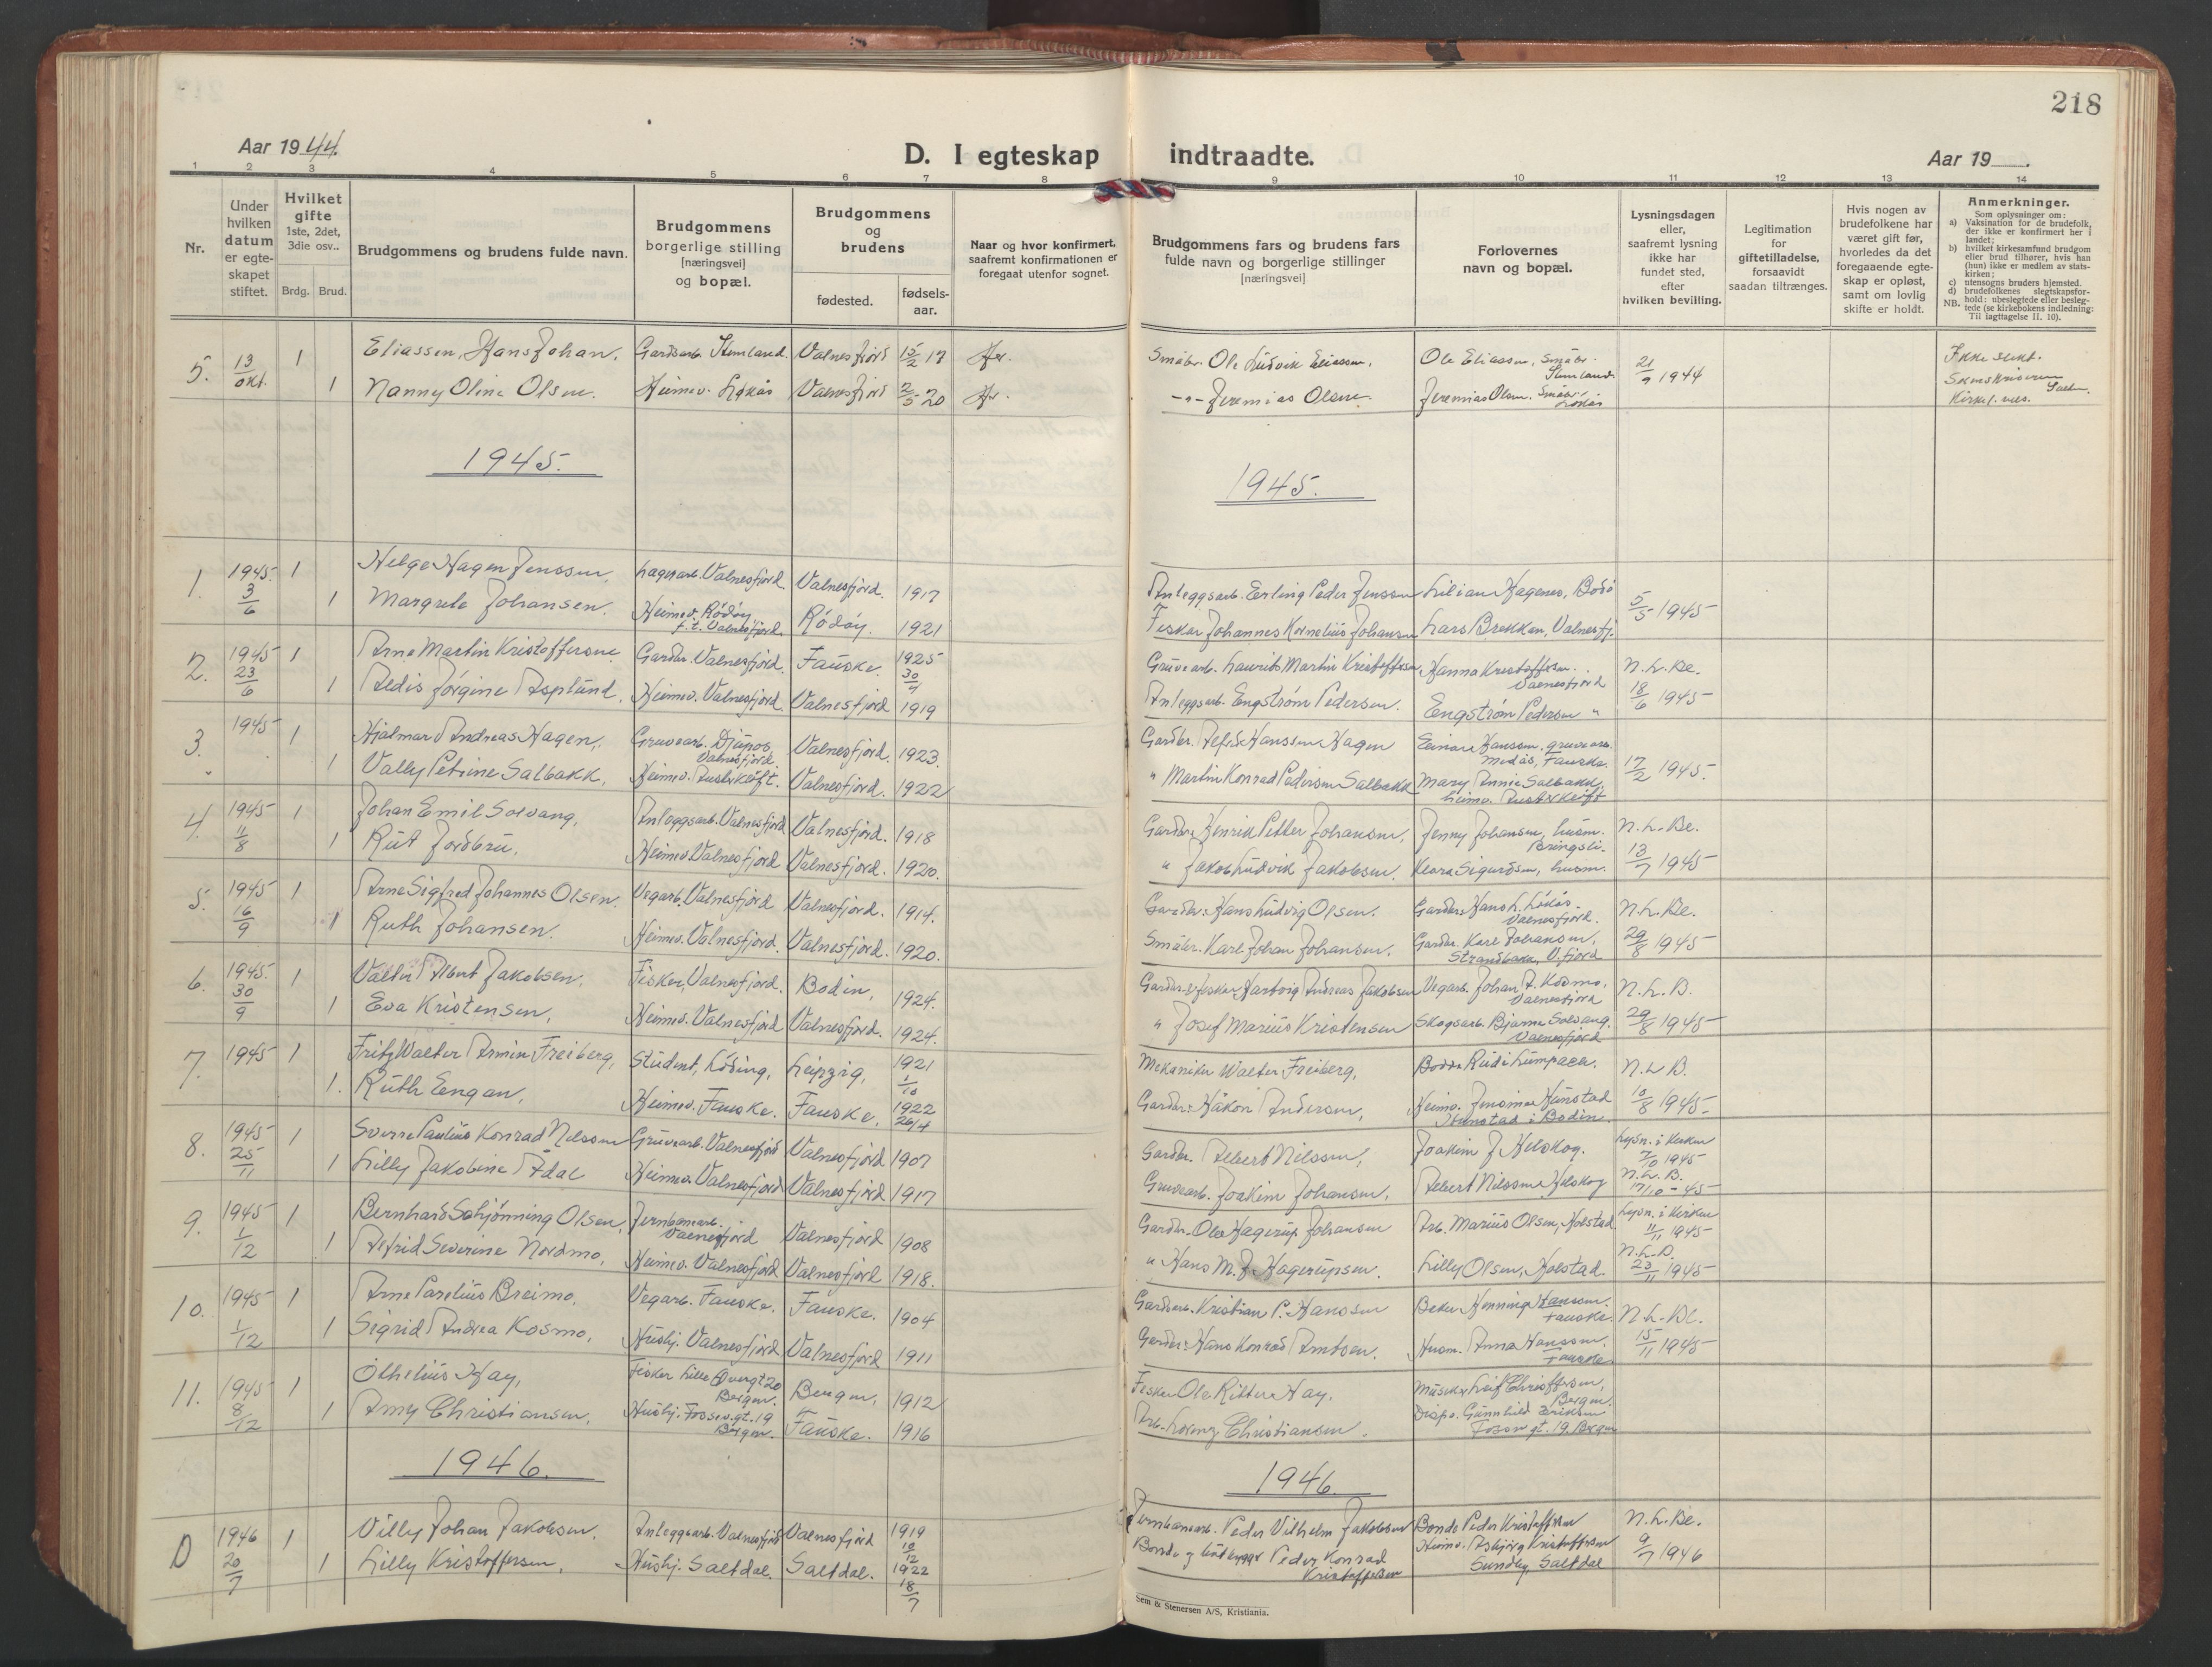 218
Aar 1944.
D. I egteskap indtraadte.
Aar 19 .
1 2 3 4 5 6 7 8 9 10 11 12 13 14
Nr.
Under hvilken datum er egteskapet stiftet.
Hvilket gifte 1ste, 2det, 3die osv..
Brdg. Brud.
Brudgommens og brudens fulde navn.
Brudgommens borgerlige stilling [næringsvei] og bopæl.
Brudgommens og brudens
fødested.
fødsels-aar.
Naar og hvor konfirmert, saafremt konfirmationen er foregaat utenfor sognet.
Brudgommens fars og brudens fars fulde navn og borgerlige stillinger [næringsvei]
Forlovernes navn og bopæl.
Lysningsdagen eller, saafremt lysning ikke har fundet sted, efter hvilken bevilling.
Legitimation for giftetilladelse, forsaavidt saadan tiltrænges.
Hvis nogen av brudefolkene har været gift før, hvorledes da det foregaaende egteskap er opløst, samt om lovlig skifte er holdt.
Anmerkninger.
Som oplysninger om:
a) Vaksination for de brudefolk, der ikke er konfirmert her i landet;
b) hvilket kirkesamfund brudgom eller brud tilhører, hvis han (hun) ikke er medlem av statskirken;
c) utensogns bruders hjemsted.
d) brudefolkenes slegtskapsforhold: ubeslegtede eller beslegtede (se kirkebokens indledning: Til iagttagelse II. 10).
NB.
5. 13/okt. 1 Eliassen, Hans Johan. Gardsarb. Stemland. Valnesfjord 15/2 17 Her. Småbr. Ole Ludvik Eliassen. Ole Eliassen, Småbr. Stemland 21/9 1944 Ikke slekt.
1 Nanny Oline Olsen. Heimev. Løkås Valnesfjord 2/5 20 Her. -"- Jeremias Olsen. Jeremias Olsen. Småbr. Løkås
1945. 1945.
1. 1945. 3/6 1 Helge Hagen Jenssen, Lagerarb. Valnesfjord. Valnesfjord. 1917 Anleggsarb. Erling Peder Jenssen Lilian Hagenes, Bodø 5/5 1945
1 Margrete Johansen. Heimev. Rødøy f.t. Valnesfjord. Rødøy. 1921 Fisker Johannes Kornelius Johansen Lars Brekken, Valnesfj.
2. 1945 23/6 1 Arne Martin Kristoffersen Gardbr. Valnesfjord. Fauske. 1925 30/4 Gruvearb. Laurits Martin Kristoffersen, Hanna Kristoffersen. Valnesfjord N.L.Be. 18/6 1945
1 Aedis Jørgine Asplund. Heimev. Valnesfjord. Valnesfjord 1919 Anleggsarb. Engstrøm Pedersen. Engstrøm Pedersen "
3. 1945 1 Hjalmar Andreas Hagen, Gruvearb. Djupos, Valnesfjord. Valnesfjord. 1923. Gardbr. Alfred Hanssen Hagen Einar Hanssen, gruvearb. Medås, Fauske. 17/2 1945.
1 Vally Petrine Salbakk. Heimev. Austerkløft. Valnesfjord. 1922 " Martin Konrad Pedersen Salbakk Mary Annie Salbakk, heimev. Austerkløft
4. 1945 11/8 1 Johan Emil Solvang, Anleggsarb. Valnesfjord Valnesfjord. 1918 Gardbr. Henrik Petter Johansen, Jenny Johansen, husm. Bringsli. N.L.Be. 13/7 1945
1 Rut Jordbru. Heimev. Valnesfjord Valnesfjord. 1920. " Jakob Ludvik Jakobsen. Klara Sigurdsen, husm.
5. 1945 16/9 1 Arne Sigfred Johannes Olsen. Vegarb. Valnesfjord Valnesfjord. 1914. Gardbr. Hans Ludvig Olsen. Gardbr. Hans L. Løkås. Valnesfjord. N.L.Be. 29/8 1945
1 Ruth Johansen. Heimev. Valnesfjord. Valnesfjord. 1920. Småbr. Karl Johan Johansen. Gardbr. Karl Johansen, Strandbakk, V.fjord
6. 1945. 30/9 1 Valter Albert Jakobsen, Fisker, Valnesfjord. Bodin, 1924. Gardbr. & fisker Hartvig Andreas Jakobsen Vegarb. Johan A. Kosmo, Valnesfjord N.L.B. 29/8 1945
1 Eva Kristensen, Heimev. Valnesfjord Valnesfjord. 1924. " Josef Marius Kristensen Skogsarb. Bjarne Solvang. Valnesfjord
7. 1945 1 Fritz Walter Armin Freiberg, Student, Løding, Leipzig, 1921 1/10 Mekaniker Walter Freiberg, Rudi N.L.B. 10/8 1945.
1. Ruth Engan, Heimev. Fauske. Fauske. 1922 26/4 Gardbr. Håkon Andersen, Heimev. Hunstad Hunstad i Bodin
8. 1945 25/11 1 Sverre Paulius Konrad Nilssen Gruvearb. Valnesfjord Valnesfjord 1907 Gardbr. Albert Nilssen, Joakim J Helskog. Lysn. i kirken 7/10 1945
1 Lilly Jakobine Ådal Heimev. Valnesfjord Valnesfjord 1917 Gruvearb. Joakim Johansen, Albert Nilssen Helskog N.L.B. 17/10-45
9. 1945 1/12 1 Bernhard Schjønning Olsen, Jernbanearb. Valnesfjord Valnesfjord 1908 Gardbr. Ole Hagerup Johansen Arb. Marius Olsen, Kolstad Lysn. i kirken 11/11 1945
1 Alfrid Severine Nordmo, Heimev. Valnesfjord Valnesfjord 1918. " Hans M. J. Hagerupsen. Lilly Olsen, Kolstad. N.L.B. 23/11 1945
10. 1945 1/12 1 Arne Parelius Breimo. Vegarb. Fauske. Fauske. 1904 Gardarb. Kristian P. Hanssen Henning Hanssen. Fauske. N.L.Be. 15/11 1945
1 Sigrid Andrea Kosmo. Hushj. Valnesfjord Valnesfjord 1911 Gardbr. Hans Konrad Arntsen. Husm. Anna Hanssen. Fauske
11. 1945 8/12 1 Othelius Hay, Fisker Lille Øvregt 20 Bergen. Bergen, 1912 Fisker Ole Ritter Hay. Musiker Leif Christoffersen, Bergen.
1 Amy Christiansen, Hushj. Fossw.gt. 19 Bergen. Fauske. 1916 Arb. Lorenz Christiansen. Gunnhild Eriksen gt. 19. Bergen
1946. 1946.
D 1946 20/7 1 Villy Johan Jakobsen. Anleggsarb. Valnesfjord Valnesfjord 1919 10/12 Jernbanearb. Peder Vilhelm Jakobsen Bonde Peder Kristoffersen N.L.Be. 9/7 1946
1 Lilly Kristoffersen. Hushj. Saltdal. Saltdal. 1922 18/7 Bonde og båtbygger Peder Konrad Kristoffersen Heimev. Asbjørg Kristoffersen Sundby, Saltdal
Sem & Stenersen A/S, Kristiania.